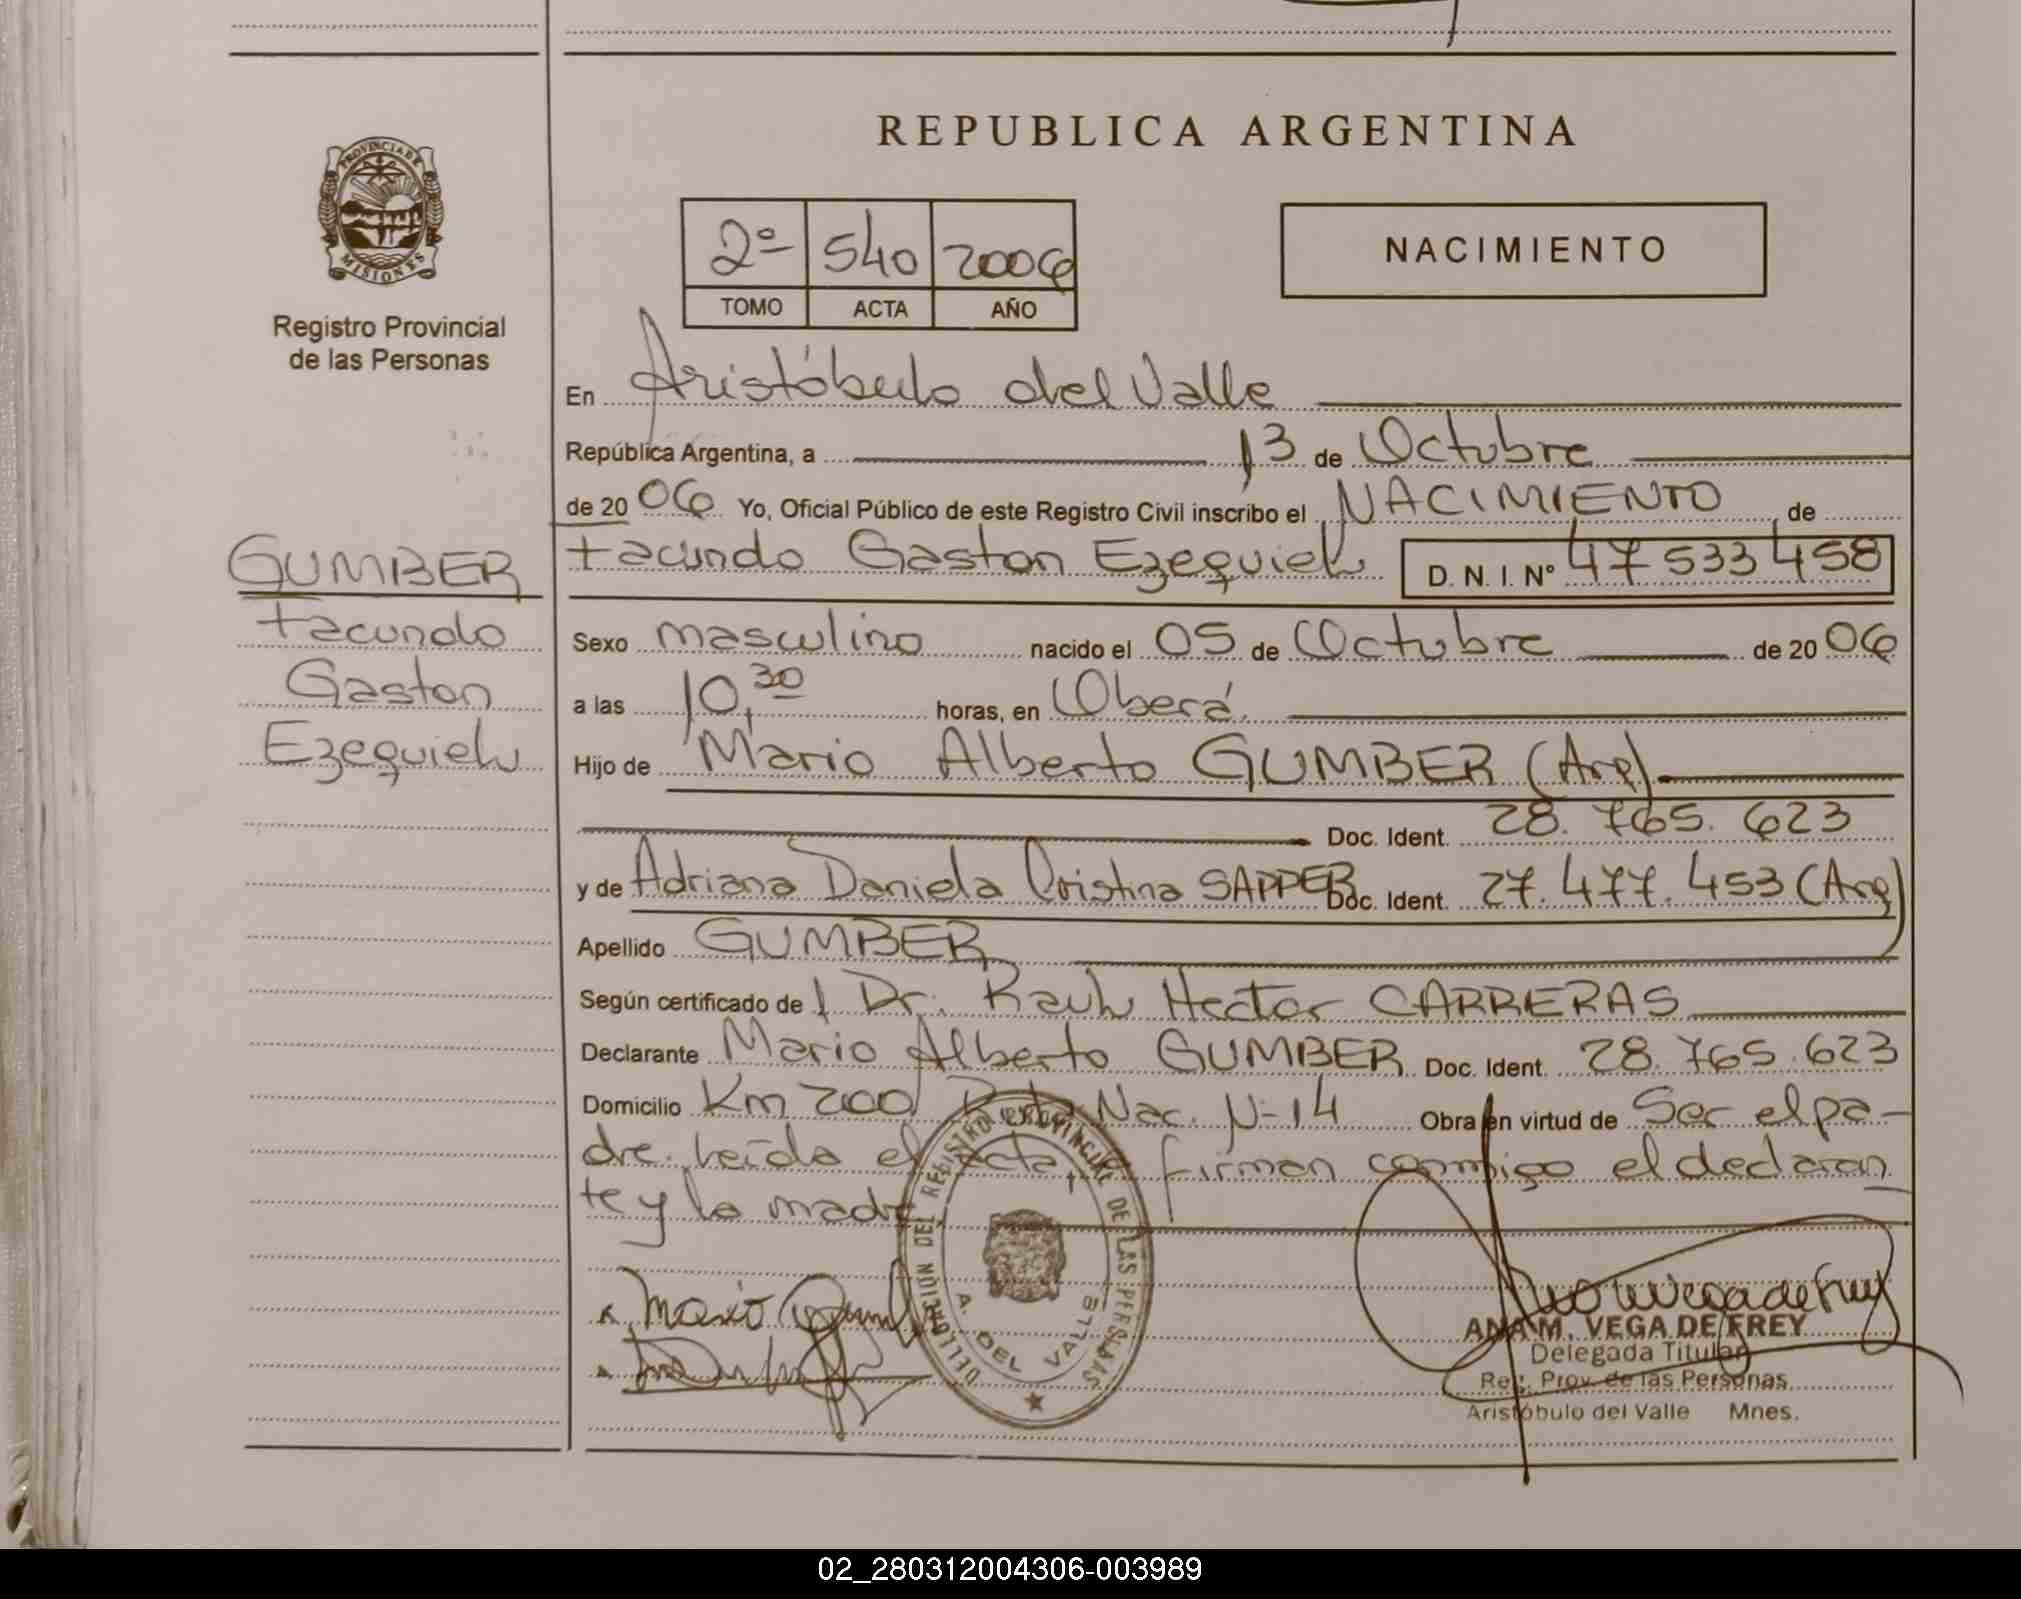 REPUBLICA ARGENTINA
PROVINCIA DE
MISIONES
Registro Provincial
de las Personas
2º 540 2006
TOMO ACTA AÑO
NACIMIENTO
En Aristóbulo del Valle
República Argentina, a 13 de Octubre
de 20 06 Yo, Oficial Público de este Registro Civil inscribo el NACIMIENTO de
GUMBER
Facundo
Gaston
Ezequiel
Facundo Gaston Ezequiel D. N. I. Nº 47 533 458
Sexo masculino nacido el 05 de Octubre de 20 06
a las 10,30 horas, en Oberá
Hijo de Mario Alberto GUMBER (Arg)
Doc. Ident. 28.765.623
y de Adriana Daniela Cristina SAPPER Doc. Ident. 27.477.453 (Arg)
Apellido GUMBER
Según certificado de l Dr. Raul Hector CARRERAS
Declarante Mario Alberto GUMBER Doc. Ident. 28.765.623
Domicilio Km 200 Ruta Nac. Nº 14 Obra en virtud de Ser el pa-
dre. Leída el acta, firman conmigo el declaran
te y la madre
DELEGACIÓN DEL REGISTRO PROVINCIAL DE LAS PERSONAS
A. DEL VALLE
Mario
ANA M. VEGA DE FREY
Delegada Titular
Reg. Prov. de las Personas
Aristóbulo del Valle Mnes.
02_280312004306-003989